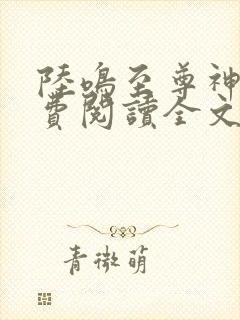 陸鳴至尊神
費閱讀全文
青微萌